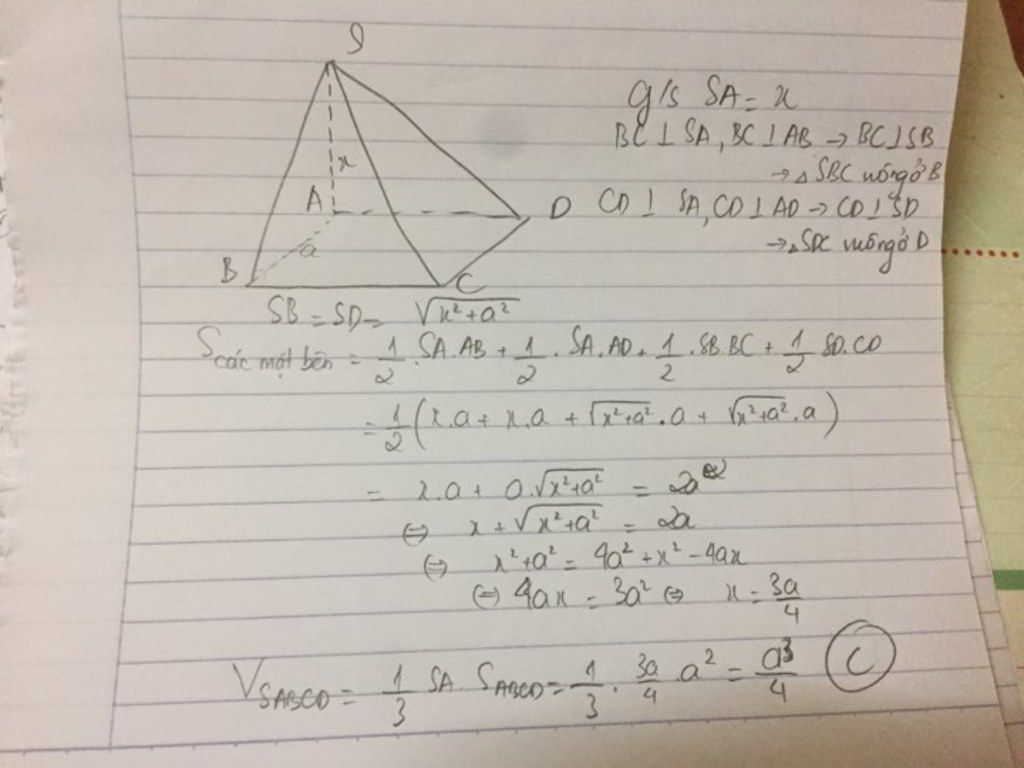 S
g/s SA = x
BC ⊥ SA, BC ⊥ AB → BC ⊥ SB
→ △ SBC vuông ở B
x
A
D
CD ⊥ SA, CD ⊥ AD → CD ⊥ SD
→ △ SDC vuông ở D
a
B
C
SB = SD = √(x²+a²)
S các mặt bên = 1/2 . SA.AB + 1/2 . SA.AD + 1/2 . SB.BC + 1/2 SD.CD
= 1/2 (x.a + x.a + √(x²+a²) . a + √(x²+a²) . a)
= x.a + a.√(x²+a²) = 2a²
⇔ x + √(x²+a²) = 2a
⇔ x²+a² = 4a² + x² - 4ax
⇔ 4ax = 3a² ⇔ x = 3a/4
V SABCD = 1/3 SA. S ABCD = 1/3 . 3a/4 . a² = a³/4 C